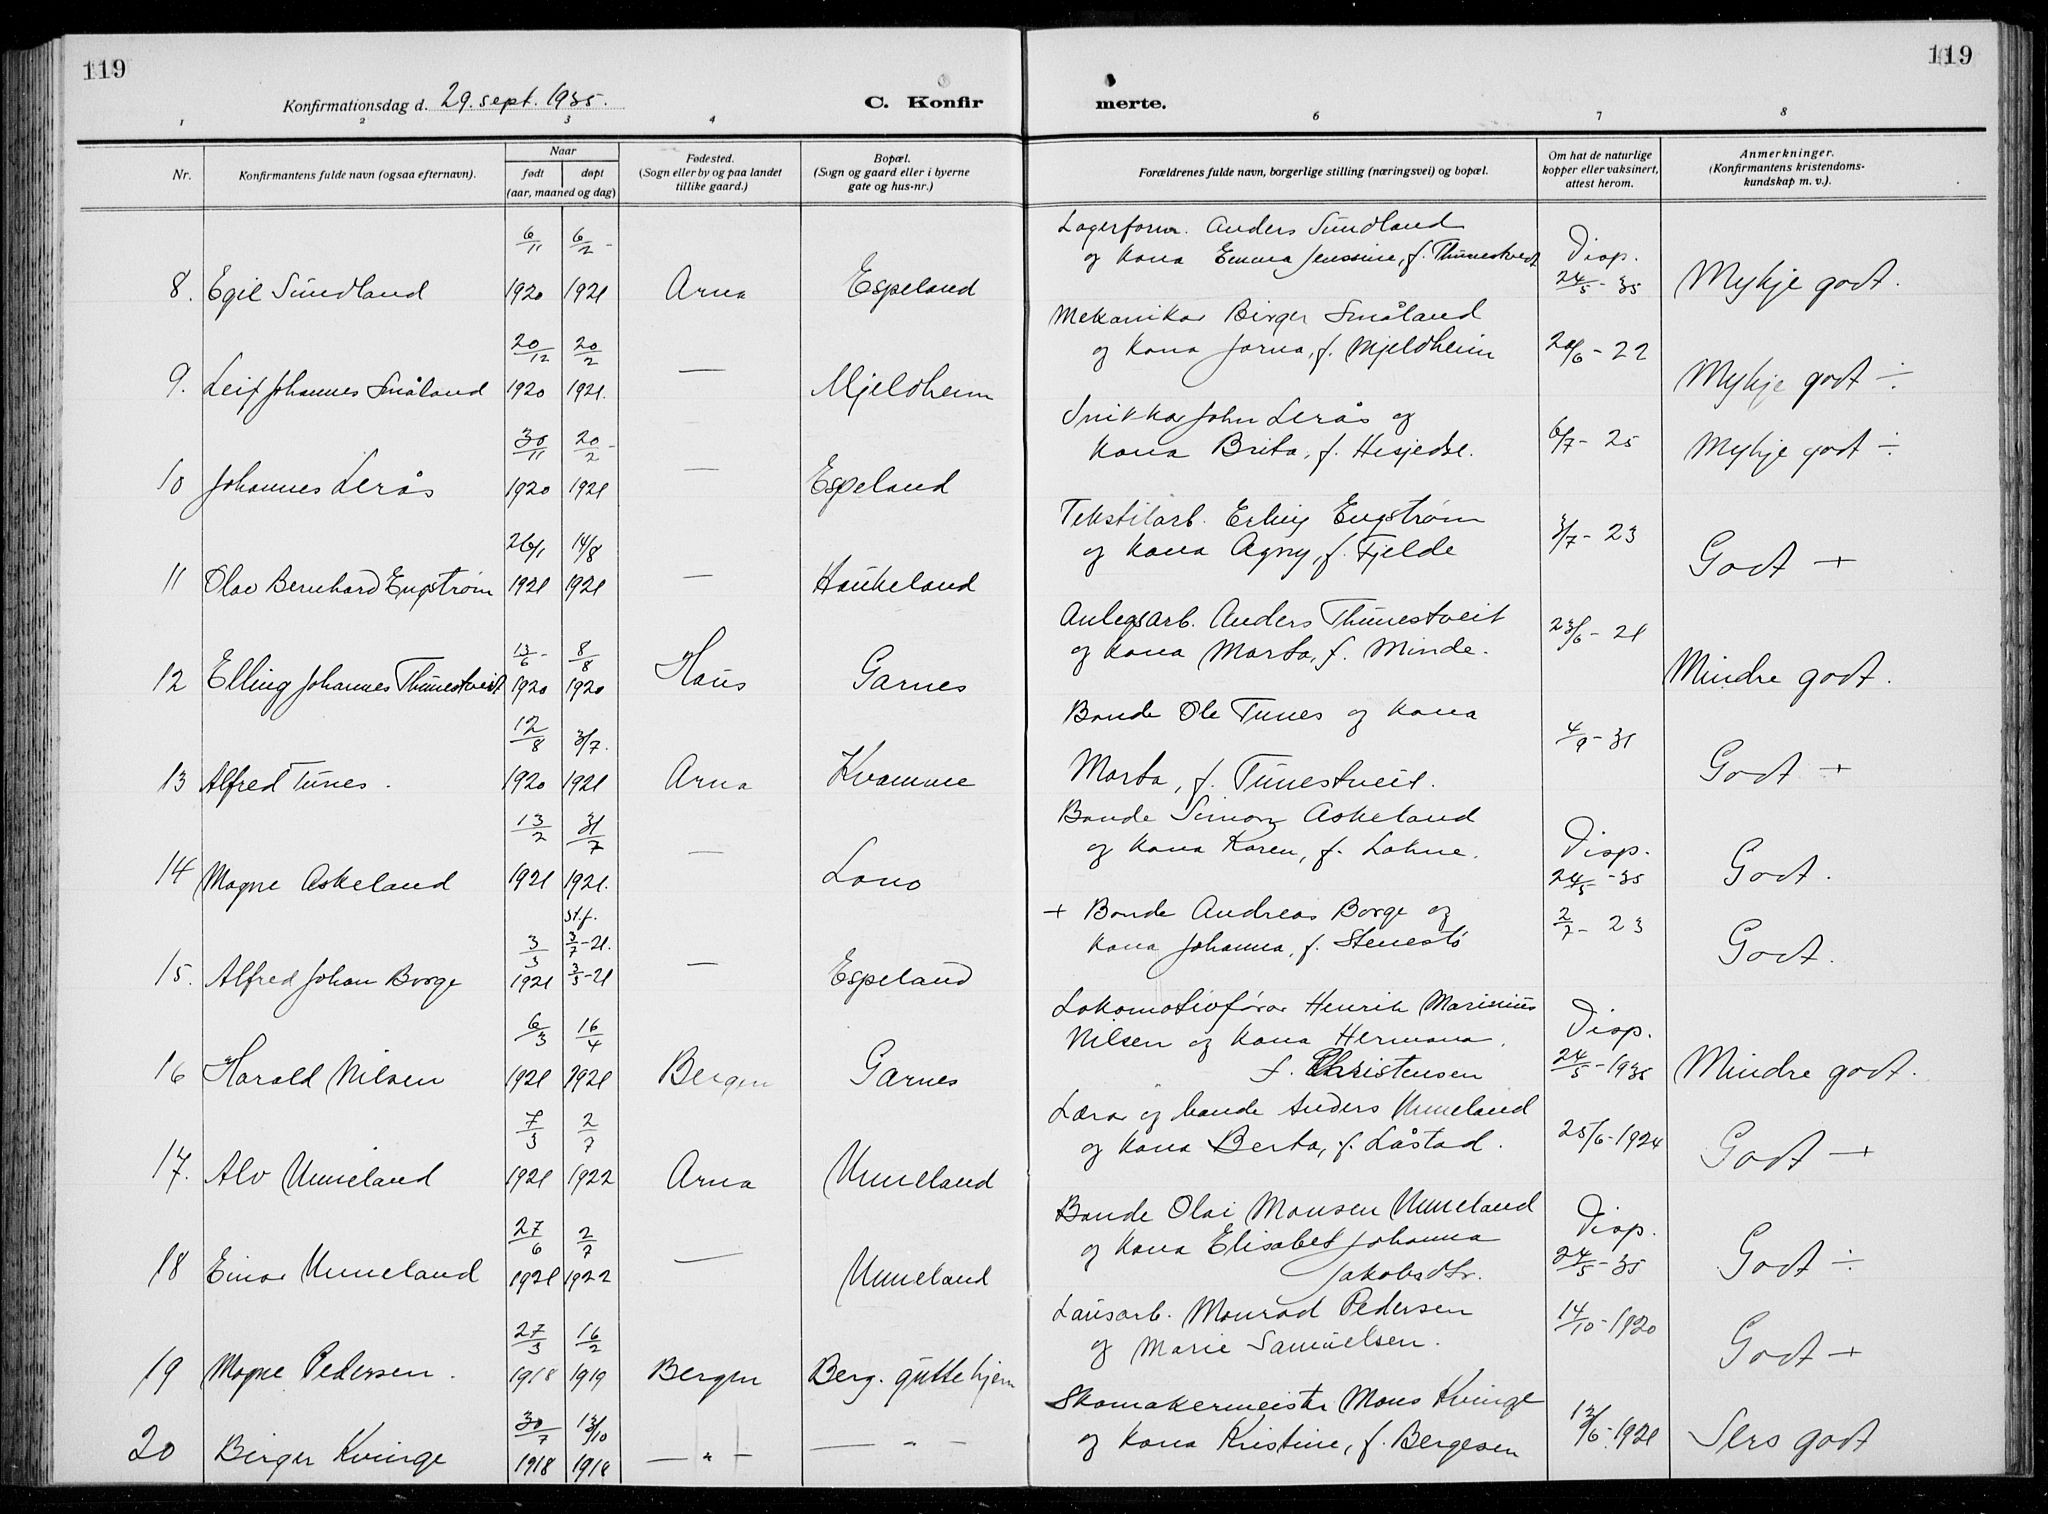 119
119
Konfirmationsdag d. 29. sept. 1935.
C. Konfir
merte.
1 2 3 4 6 7 8
Nr.
Konfirmantens fulde navn (ogsaa efternavn).
Naar
født døpt
(aar, maaned og dag)
Fødested.
(Sogn eller by og paa landet
tillike gaard.)
Bopæl.
(Sogn og gaard eller i byerne
gate og hus-nr.)
Forældrenes fulde navn, borgerlige stilling (næringsvei) og bopæl.
Om hat de naturlige
kopper eller vaksinert,
attest herom.
Anmerkninger.
(Konfirmantens kristendoms-
kundskap m. v.).
6/11 6/2 - Lagerform. Anders Sundland
og kona Emma Jenssine, f. Thunestveit Disp.
8. Egil Sundland 1920 1921 Arna Espeland 24/5 - 35 Mykje godt.
20/12 20/2 Mekanikar Birger Småland
og kona Jorna, f. Mjeldheim 20/6 - 22
9. Leif Johannes Småland 1920 1921. — Mjeldheim Mykje godt ÷
30/11 20/2 - Snikkar John Lerås og
kona Brita, f. Hesjedal. 6/7 - 25 Mykje godt ÷
10 Johannes Lerås 1920 1921 — Espeland
26/1 14/8 Tekstilarb. Erling Engstrøm
og kona Agny, f. Fjelde 3/7 - 23 Godt +
11 Olav Bernhard Engstrøm 1921 1921 — Haukeland
13/6 - 8/8 Anlegsarb. Anders Thunestveit 23/6 - 21
og kona Marta, f. Minde.
12 Elling Johannes Thunestveit 1920 1920 Haus Garnes Mindre godt.
12/8 3/7. Bonde Ole Tunes og kona 4/9 - 31
13 Alfred Tunes. 1920 1921 Arna Kvamme Marta, f. Tunestveit. Godt +
13/2 31/7 Bonde Simon Askeland
og kona Karen, f. Lohne. Disp.
14 Magne Askeland 1921 1921. — Lono 24/5 - 35 Godt.
3/3 st.f. 3/7 - 21. + Bonde Andreas Borge og 2/7 - 23
kona Johanna, f. Stenestø Godt.
15. Alfred Johan Borge 1921 3/3 - 21 — Espeland
6/3 16/4 Lokomotivførar Henrik Marinius
Nilsen og kona Hermana, Disp.
16 Harald Nilsen 1921 1921 Bergen Garnes f. Christensen 24/5 - 1935 Mindre godt.
7/3 2/7 Lærar og bonde Anders Unneland
og kona Berta, f. Låstad. 25/6 - 1924
17. Alv Unneland 1921 1922 Arna Unneland Godt +
27/6 2/7 Bonde Olai Monsen Unneland Disp.
og kona Elisabet Johanna
18 Einar Unneland 1921 1922 — Unneland Jakobsdtr. 24/5 - 35 Godt ÷
27/3 16/2 Lausarb. Monrad Pedersen 14/10 - 1920
og Marie Samuelsen.
19 Magne Pedersen. 1918 1919 Bergen Berg. guttehjem Godt +
30/7 13/10 Skomakermeister Mons Kvinge 13/6 - 1921
20 Birger Kvinge 1918 1918 — " — — " — og kona Kristine, f. Bergesen Sers godt